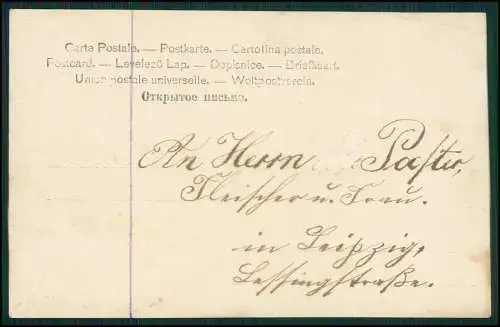 Carte Postale. — Postkarte. — Cartolina postale.
Postcard. — Levelező Lap. — Dopisnice. — Briefkaart.
Union postale universelle. — Weltpostverein.
Открытое письмо.
An Herrn Pastor,
Fleischer u. Frau.
in Leipzig,
Lessingstraße.